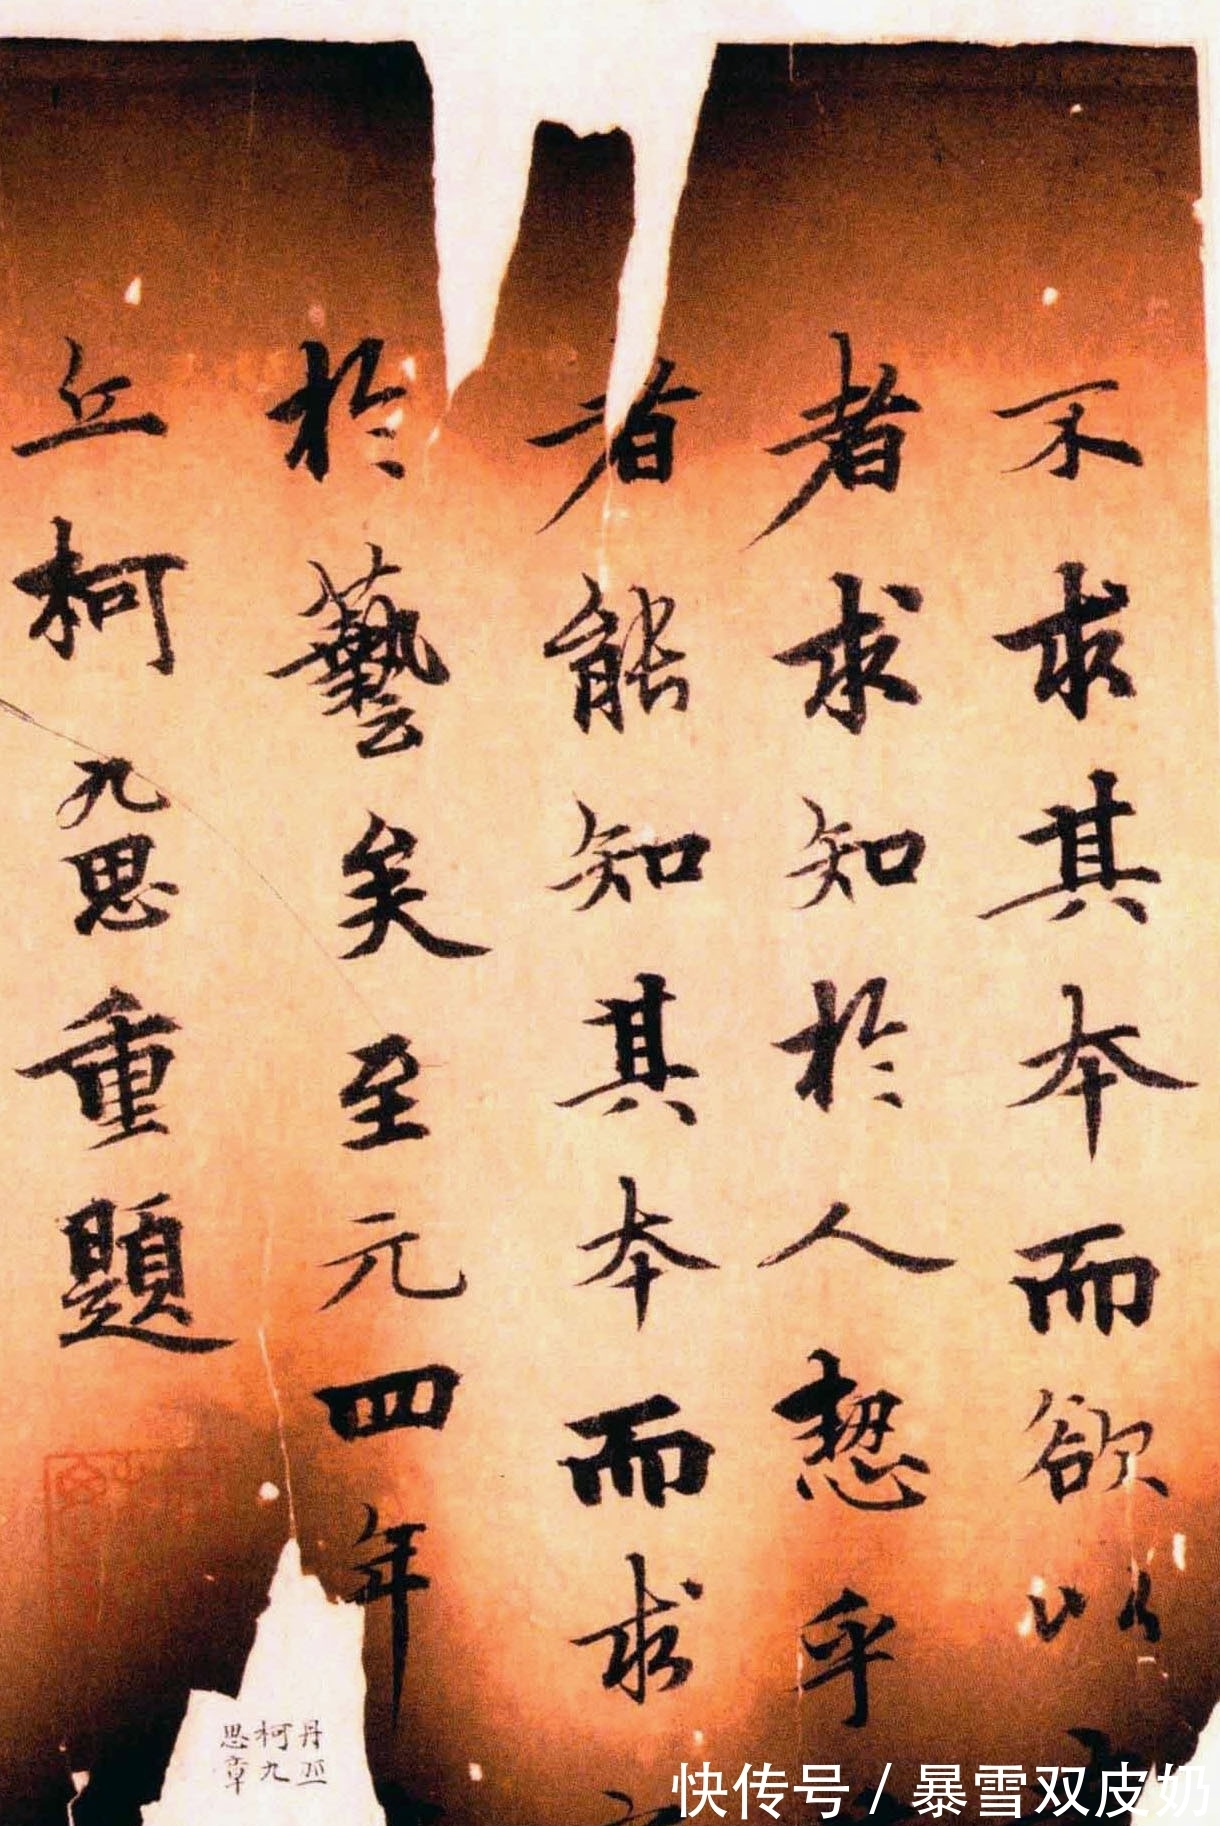 不求其本而欲以
者求知於人恝乎
者能知其本而求
於藝矣至元四年
丘柯九思重題
丹丘
柯九
思章
快传号 / 暴雪双皮奶